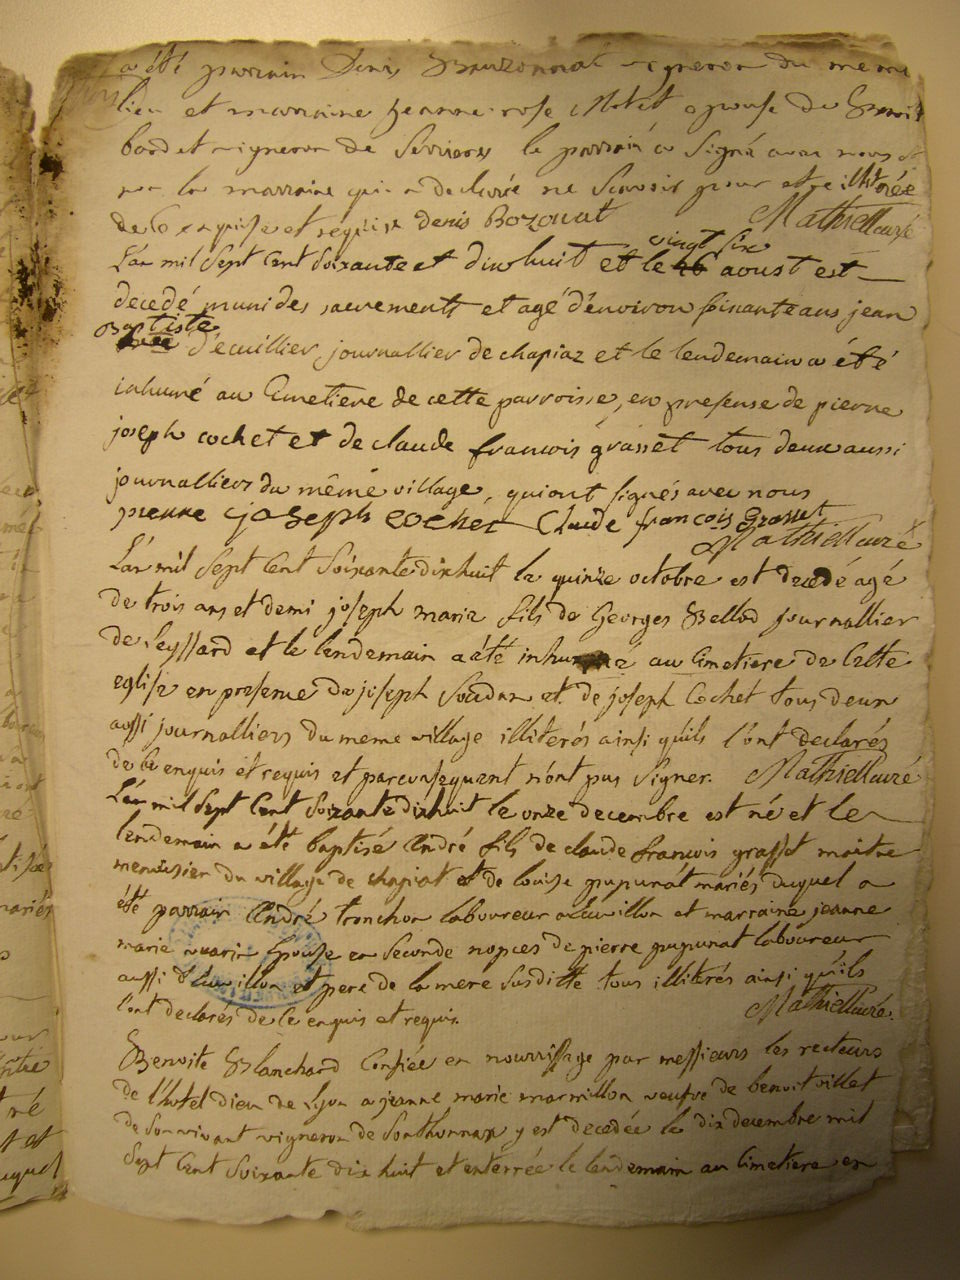 a été parrain Denis Bauzonnat vigneron du meme
lieu et marraine jeanne rose Motet epouse de Benoit
bordet vigneron de Serrieres le parrain a signé avec nous et
non la marraine qui a declarée ne scavoir pour etre illiterée
de ce enquise et requise denis Bozonat Mathieu curé
L'an mil sept cent soixante et dixhuit et le vingt six aoust est
decedé muni des sacrements et agé d'environ soixante ans jean
Baptiste d'ecuillier journallier de chapiaz et le lendemain a été
inhumé au Cimetiere de cette parroisse, en presense de pierre
joseph cochet et de claude francois grasset tous deux aussi
journalliers du même village, qui ont signés avec nous
pierre joseph cochet Claude francois Grasset
Mathieu curé
L'an mil sept cent soixante dixhuit le quinze octobre est decedé agé
de trois ans et demi joseph marie fils de Georges Bellod journallier
de Leyssard et le lendemain a été inhumé au cimetiere de cette
eglise en presence de joseph Soudan et de joseph Cochet tous deux
aussi journalliers du meme village illiterés ainsi quils l'ont declarés
de ce enquis et requis et parconsequent n'ont pas signer. Mathieu curé
L'an mil sept cent soixante dixhuit le onze decembre est né et le
lendemain a été baptisé André fils de claude francois grasset maitre
menuisier du village de chapiat et de louise pupunat mariés duquel a
été parrain André tronchon laboureur a Leuvillon et marraine jeanne
marie epouse en seconde nopces de pierre pupunat laboureur
aussi a Leuvillon et pere de la mere susditte tous illiterés ainsi quils
l'ont declarés de ce enquis et requis. Mathieu curé.
Benoite Blanchard Confiée en nourrissage par messieurs les recteurs
de l'hotel dieu de Lyon a jeanne marie marmillon veufve de benoit villet
de son vivant vigneron de Sonthonnax y est decedée le dix decembre mil
sept cent soixante dix huit et enterrée le lendemain au cimetiere en